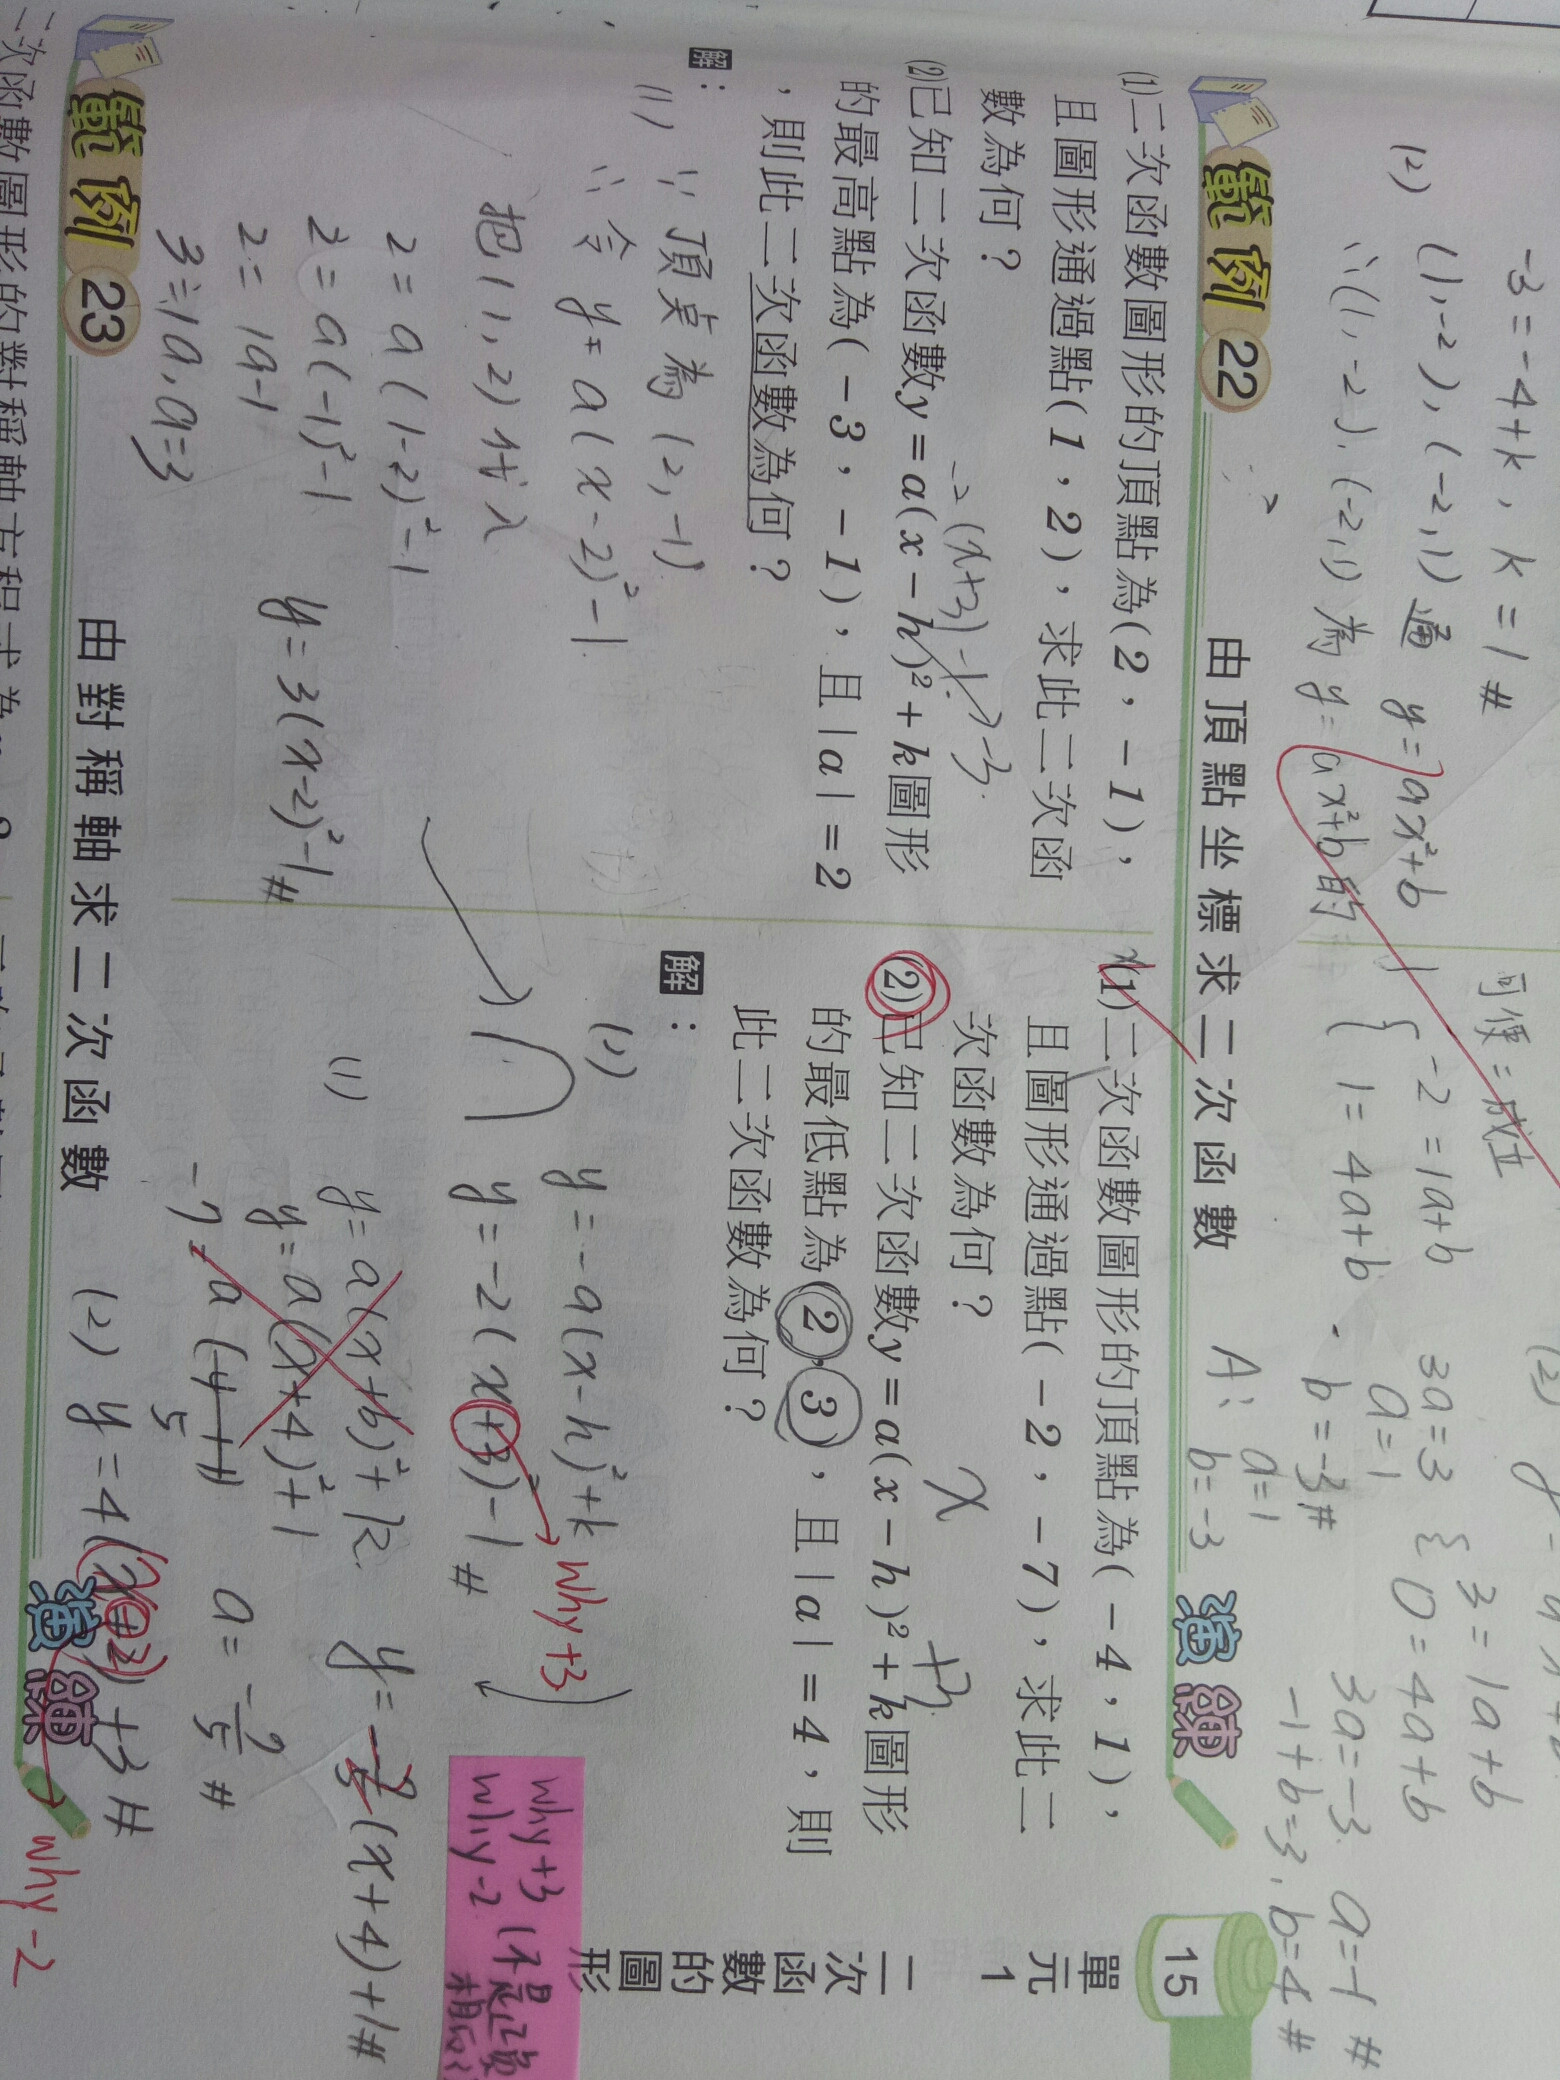 -3=-4+k, k=1#
(2) (1,-2),(-2,1)通 y=ax²+b
∵(1,-2),(-2,1)為y=ax²+b的
可使=成立
{-2=1a+b
1=4a+b
3a=3
a=1
b=-3#
A: a=1
b=-3
{3=1a+b
0=4a+b
3a=-3 a=-1#
-1+b=3, b=4#
範例 22 由頂點坐標求二次函數 演練
⑴二次函數圖形的頂點為(2,-1),
且圖形通過點(1,2),求此二次函
數為何?
-2(x+3)-1
⑵已知二次函數y=a(x-h)²+k圖形
的最高點為(-3,-1),且|a|=2
,則此二次函數為何?
解:
(1) ∵頂点為(2,-1)
∴令 y=a(x-2)²-1
把(1,2)代入
2=a(1-2)²-1
2=a(-1)²-1
2=1a-1
3=1a, a=3
y=3(x-2)²-1#
(1)二次函數圖形的頂點為(-4,1),
且圖形通過點(-2,-7),求此二
次函數為何?
x +3
(2)已知二次函數y=a(x-h)²+k圖形
的最低點為(2,3),且|a|=4,則
此二次函數為何?
解:
y=-a(x-h)²+k
y=-2(x+3)²-1#
why+3
(1) y=a(x+b)²+k
y=a(x+4)²+1
a=
y= (x+4)+1#
(2) y=4 +3#
why -2
why+3
why-2
15
單元1
二次函數的圖形
範例 23 由對稱軸求二次函數 演練
二次函數圖形的對稱軸方程式為